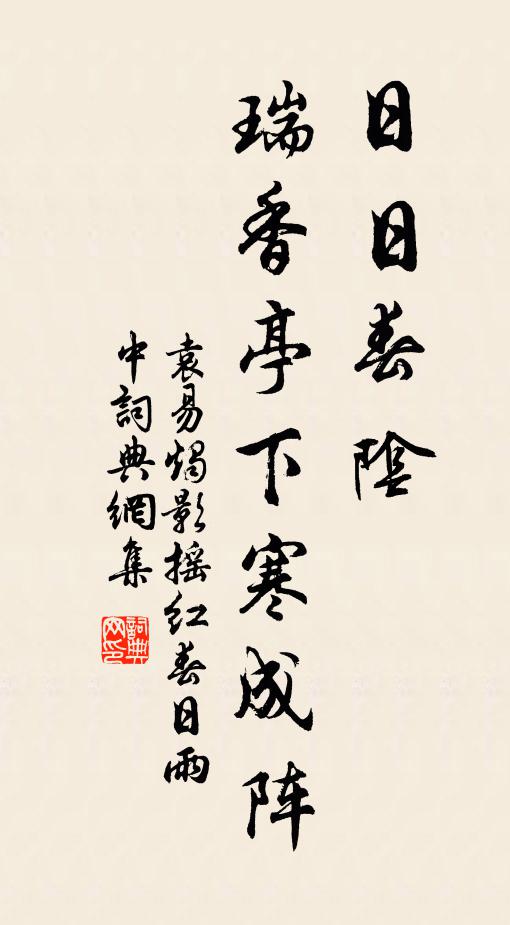 日日春陰
瑞香亭下寒成阵
袁易燭影摇红春日雨
中詞典網集
詞典
网印